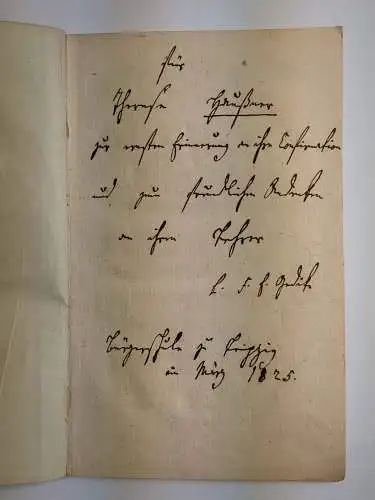 Für
Therese Haußner
zur ernsten Erinerung an ihre Confirmation
und zum freundlichen Andenken
an ihren Lehrer
L. F. E. Gedike
Bürgerschule zu Leipzig
im März 1825.